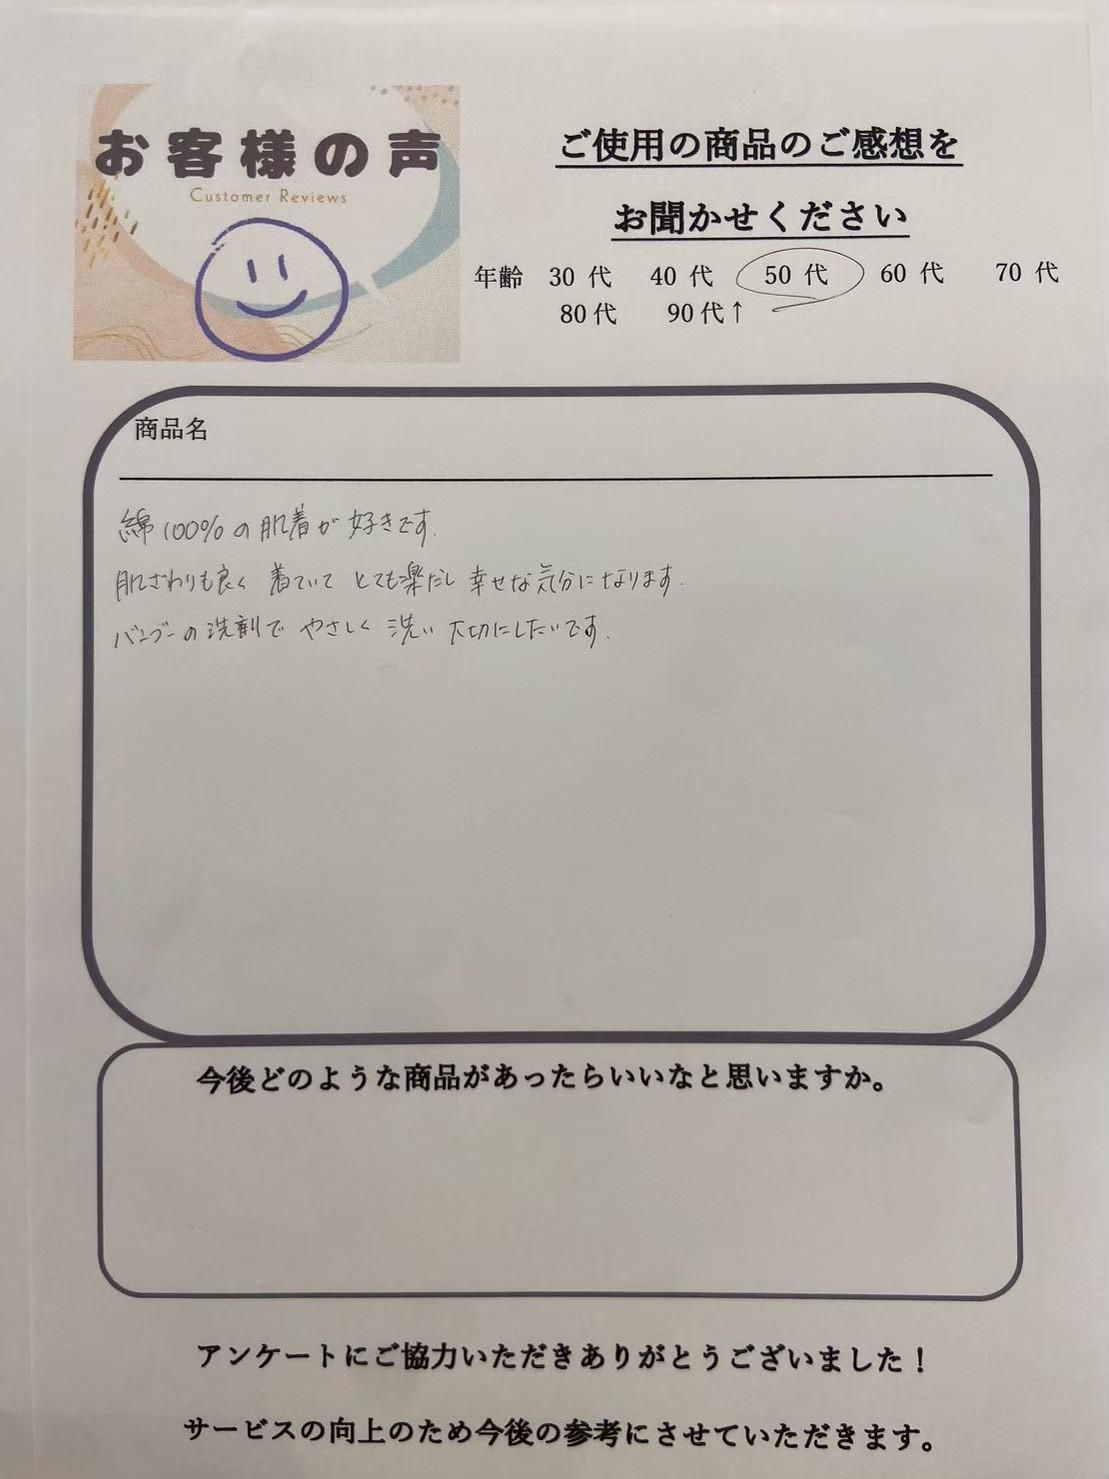 お客様の声
Customer Reviews
ご使用の商品のご感想を
お聞かせください
年齢 30 代 40 代 50 代 60 代 70 代
80代 90代↑
商品名
綿100%の肌着が好きです.
肌ざわりも良く 着ていて とても楽だし 幸せな気分になります.
バンブーの洗剤で やさしく 洗い 大切にしたいです.
今後どのような商品があったらいいなと思いますか。
アンケートにご協力いただきありがとうございました！
サービスの向上のため今後の参考にさせていただきます。